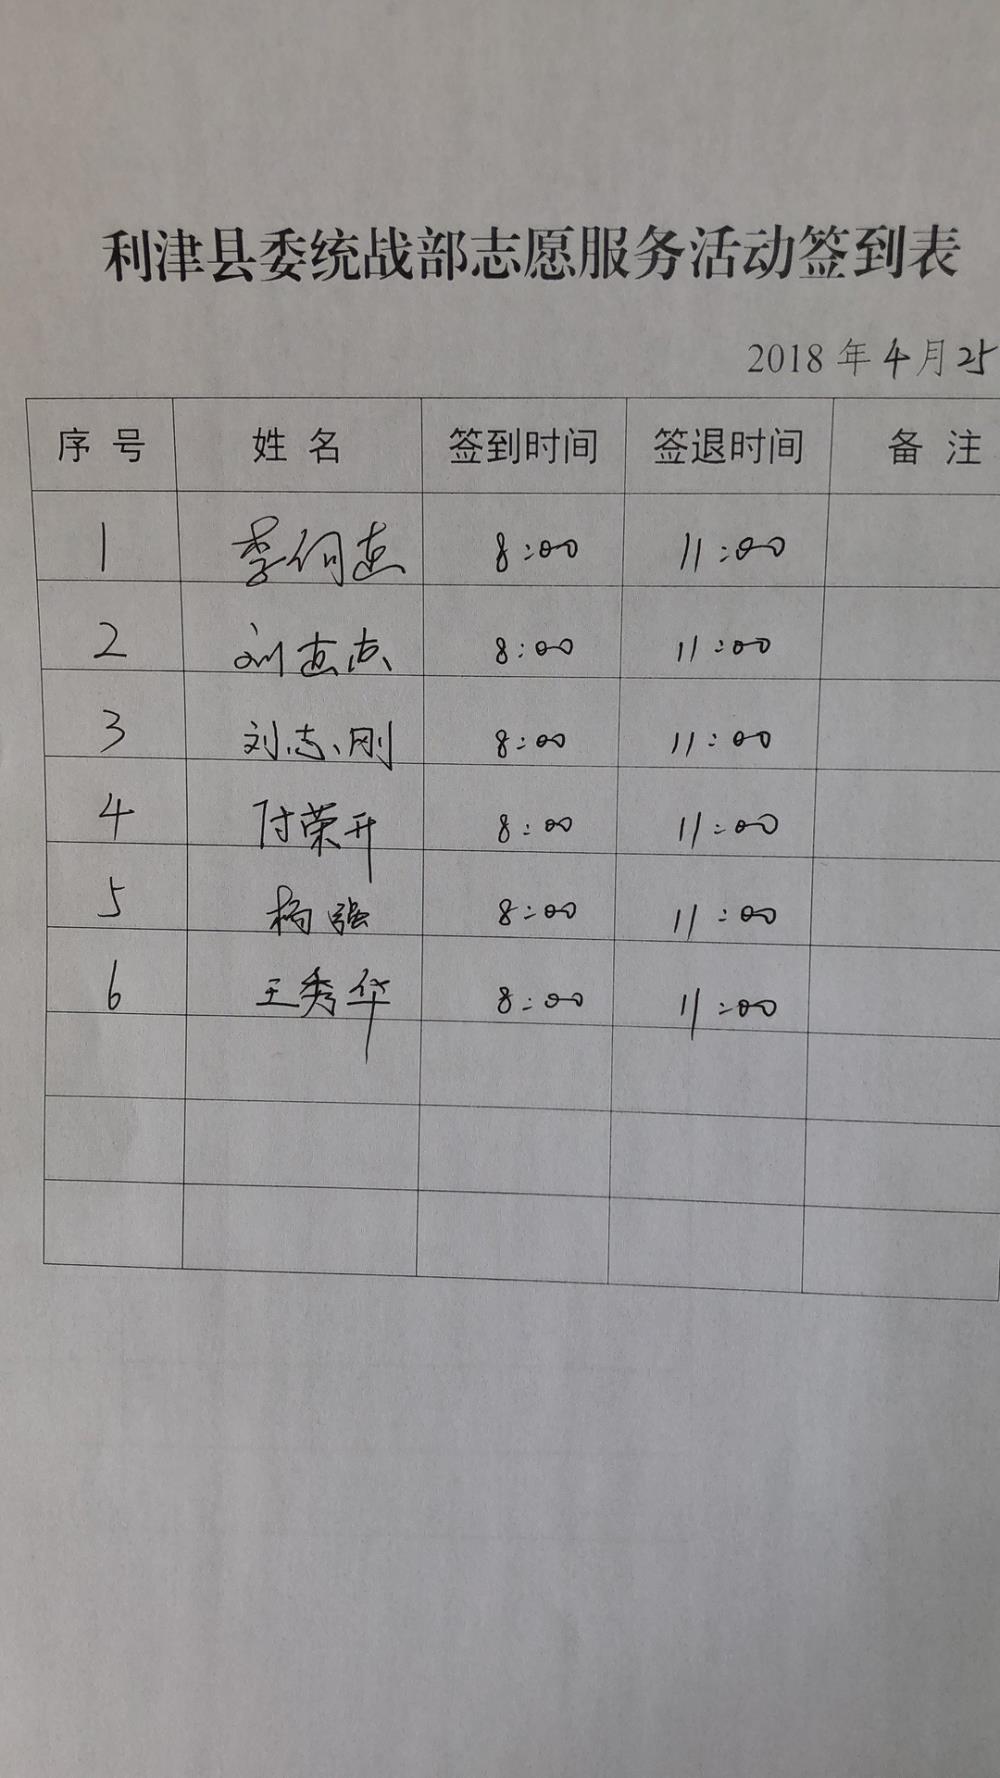 利津县委统战部志愿服务活动签到表
2018 年 4 月 25
序 号 姓 名 签到时间 签退时间 备 注
1 李 8:00 11:00
2 刘 8:00 11:00
3 刘志刚 8:00 11:00
4 付荣开 8:00 11:00
5 杨强 8:00 11:00
6 王秀华 8:00 11:00